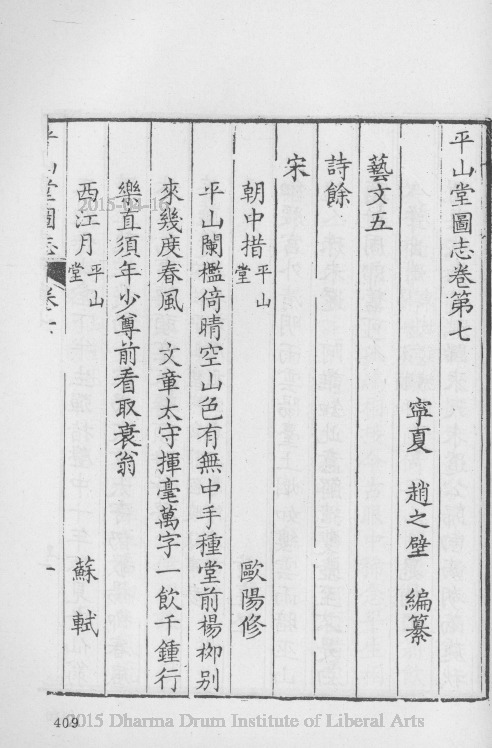 平山堂圖志卷第七
寧夏 趙之壁 編纂
藝文五
詩餘
宋
朝中措平山堂 歐陽修
平山闌檻倚晴空山色有無中手種堂前楊柳别
來幾度春風 文章太守揮毫萬字一飲千鍾行
樂直須年少尊前看取衰翁
西江月平山堂 蘇軾
平山堂圖志 卷七 一
409
2015-04-16
2015 Dharma Drum Institute of Liberal Arts